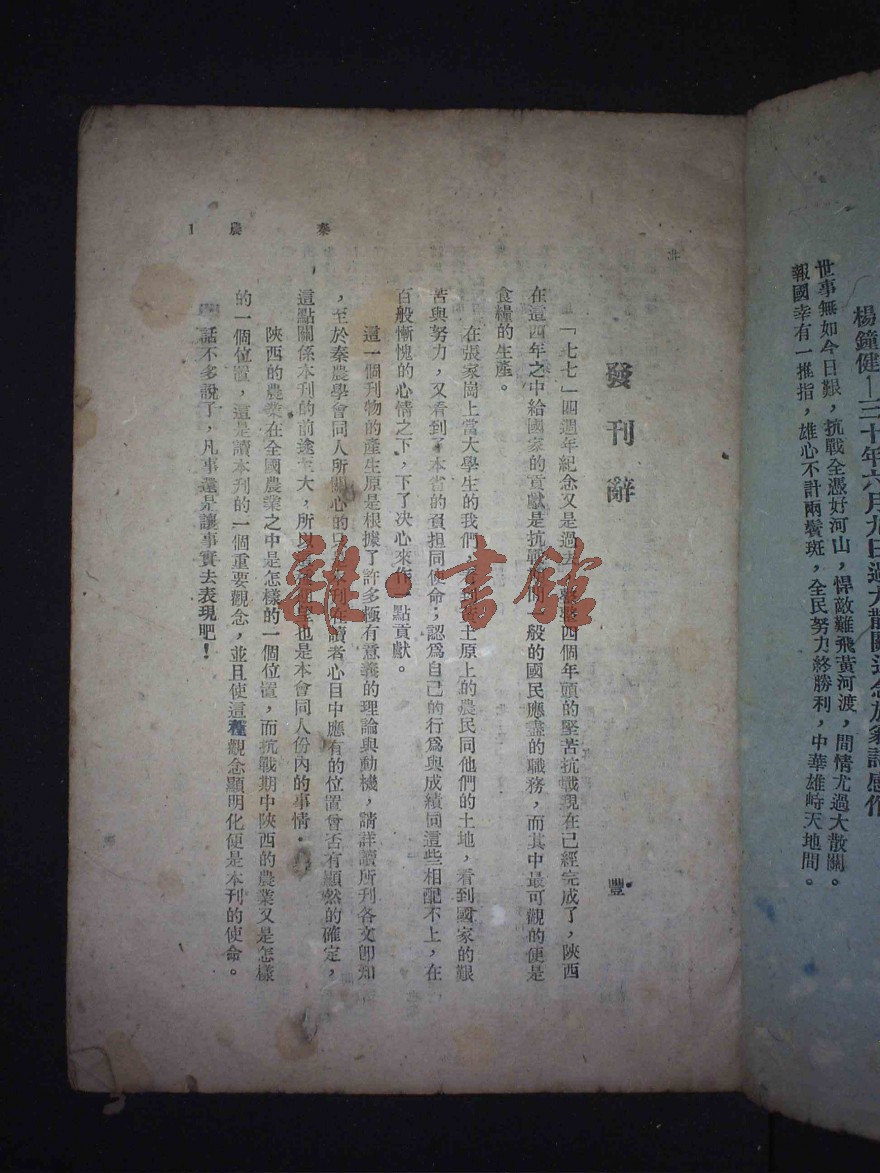 楊鐘健—三十年六月九日過大散關
世事無如今日艱，抗戰全憑好河山，悍敵難飛黃河渡，間情尤過大散關。
報國幸有一推指，雄心不計兩鬢斑，全民努力終勝利，中華雄峙天地間。
秦農 1
發刊辭 豐
「七七」四週年紀念又是過去，艱苦四個年頭的堅苦抗戰現在已經完成了，陝西
在這四年之中給國家的貢獻是抗戰 般的國民應盡的職務，而其中最可觀的便是
食糧的生產。
在張家崗上當大學生的我們， 土原上的農民同他們的土地，看到國家的艱
苦與努力，又看到了本省的負担同使命；認爲自己的行爲與成績同這些相配不上，在
百般慚愧的心情之下，下了决心來作 點貢獻。
這一個刊物的產生原是根據了許多極有意義的理論與動機，請詳讀所刊各文卽知
，至於秦農學會同人所關心的 本刊在讀者心目中應有的位置會否有顯然的確定，
這點關係本刊的前途 大，所以 也是本會同人份內的事情。
陝西的農業在全國農業之中是怎樣的一個位置，而抗戰期中陝西的農業又是怎樣
的一個位置，這是讀本刊的一個重要觀念，並且使這種觀念顯明化便是本刊的使命。
話不多說了，凡事還是讓事實去表現吧！
雜·書館